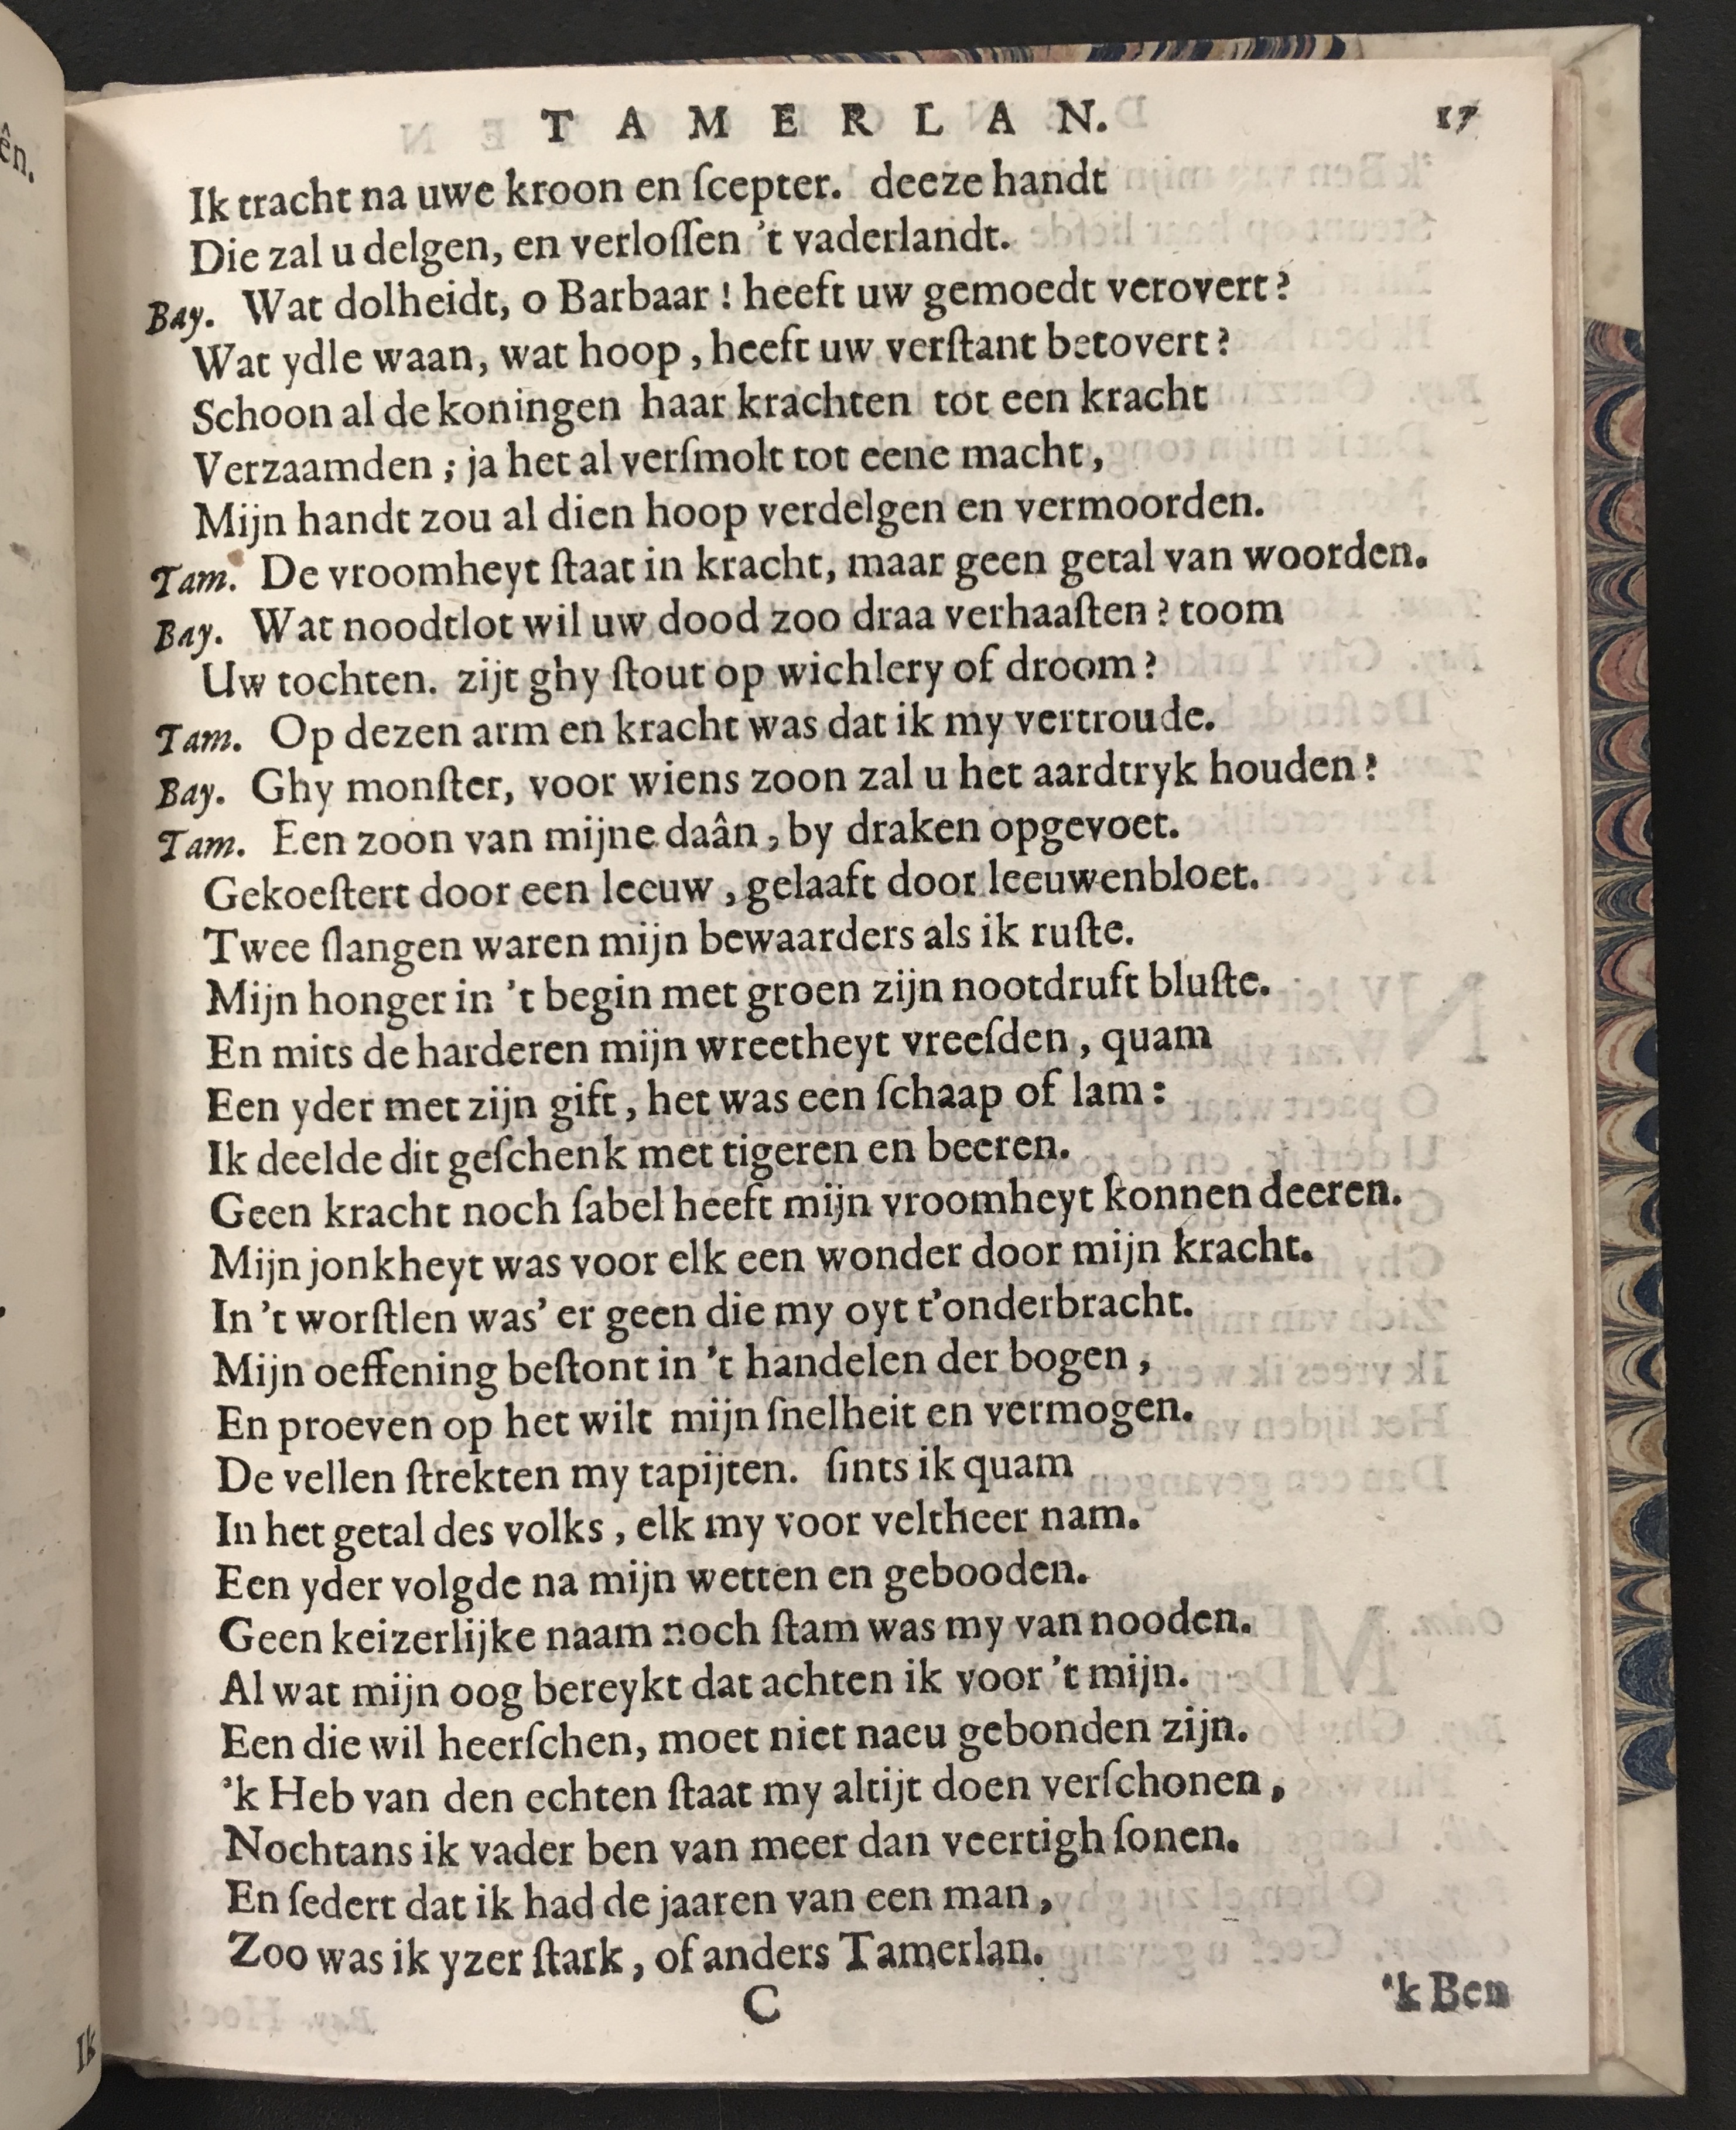 TAMERLAN. 17
Ik tracht na uwe kroon en ſcepter. deeze handt
Die zal u delgen, en verloſſen 't vaderlandt.
Bay. Wat dolheidt, o Barbaar! heeft uw gemoedt verovert?
Wat ydle waan, wat hoop, heeft uw verſtant betovert?
Schoon al de koningen haar krachten tot een kracht
Verzaamden; ja het al verſmolt tot eene macht,
Mijn handt zou al dien hoop verdelgen en vermoorden.
Tam. De vroomheyt ſtaat in kracht, maar geen getal van woorden.
Bay. Wat noodtlot wil uw dood zoo draa verhaaſten? toom
Uw tochten. zijt ghy ſtout op wichlery of droom?
Tam. Op dezen arm en kracht was dat ik my vertroude.
Bay. Ghy monſter, voor wiens zoon zal u het aardtryk houden?
Tam. Een zoon van mijne daân, by draken opgevoet.
Gekoeſtert door een leeuw, gelaaft door leeuwenbloet.
Twee ſlangen waren mijn bewaarders als ik ruſte.
Mijn honger in 't begin met groen zijn nootdruft bluſte.
En mits de harderen mijn wreetheyt vreeſden, quam
Een yder met zijn gift, het was een ſchaap of lam:
Ik deelde dit geſchenk met tigeren en beeren.
Geen kracht noch ſabel heeft mijn vroomheyt konnen deeren.
Mijn jonkheyt was voor elk een wonder door mijn kracht.
In 't worſtlen was' er geen die my oyt t'onderbracht.
Mijn oeffening beſtont in 't handelen der bogen,
En proeven op het wilt mijn ſnelheit en vermogen.
De vellen ſtrekten my tapijten. ſints ik quam
In het getal des volks, elk my voor veltheer nam.
Een yder volgde na mijn wetten en gebooden.
Geen keizerlijke naam noch ſtam was my van nooden.
Al wat mijn oog bereykt dat achten ik voor 't mijn.
Een die wil heerſchen, moet niet naeu gebonden zijn.
'k Heb van den echten ſtaat my altijt doen verſchonen,
Nochtans ik vader ben van meer dan veertigh ſonen.
En ſedert dat ik had de jaaren van een man,
Zoo was ik yzer ſtark, of anders Tamerlan.
C 'k Ben